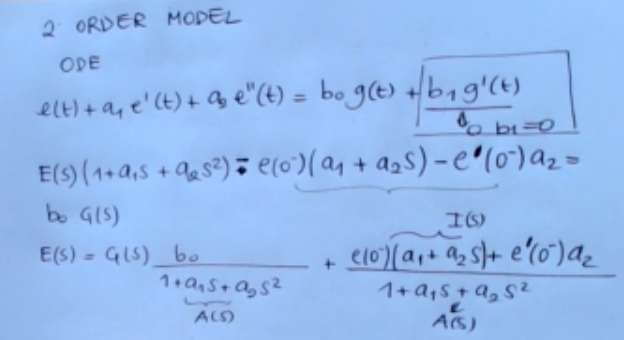 2 ORDER MODEL
ODE
e(t) + a₁ e'(t) + a₂ e''(t) = b₀ g(t) + b₁ g'(t)
0 b₁=0
E(s) (1+a₁s + a₂s²) - e(0⁻)(a₁ + a₂s) - e'(0⁻)a₂ =
b₀ G(s)
I(s)
E(s) = G(s) b₀ / (1+a₁s+a₂s²) + (e(0⁻)(a₁+a₂s) + e'(0⁻)a₂) / (1+a₁s+a₂s²)
A(s) A(s)